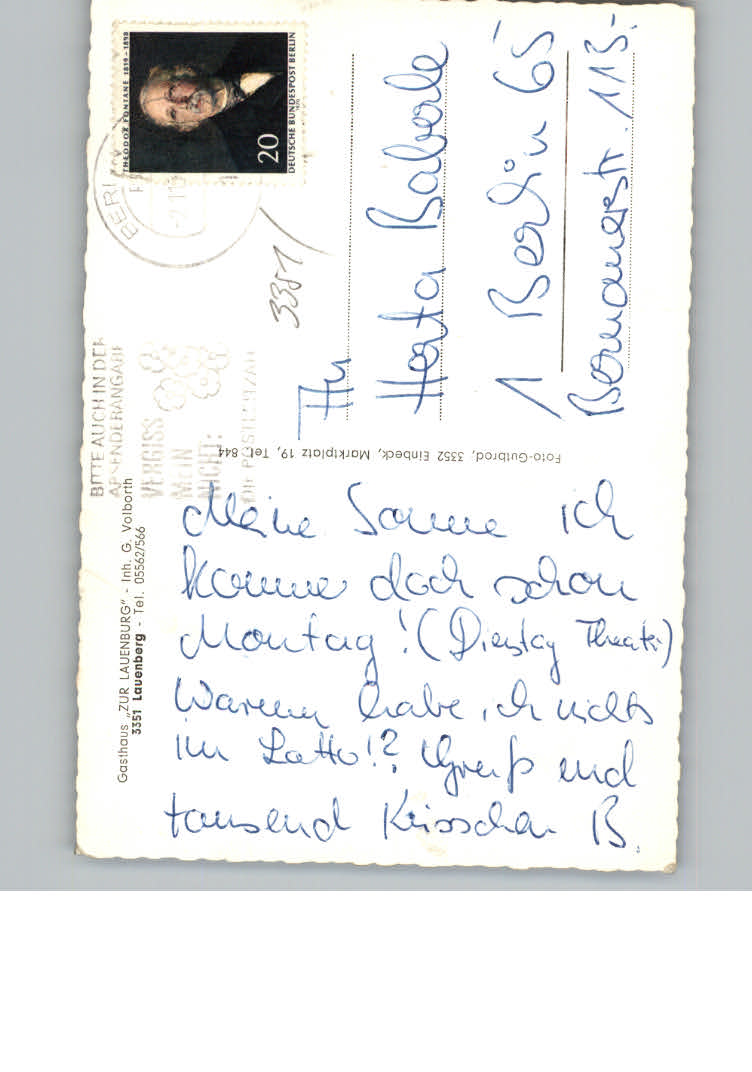 Gasthaus „ZUR LAUENBURG" - Inh. G. Volborth
3351 Lauenberg - Tel. 05562/566
Meine Sonne ich
komme doch schon
Montag! (Dienstag Theater)
Warum habe ich nichts
im Lotto!? Gruß und
tausend Küsschen B.
Foto-Gutbrod, 3352 Einbeck, Marktplatz 19, Tel. 844
BITTE AUCH IN DER
ABSENDERANGABE
VERGISS
MEIN
NICHT:
DIE POSTLEITZAHL
BERL
THEODOR FONTANE 1819-1898
20
DEUTSCHE BUNDESPOST BERLIN
1970
3351/
An
Herta
1 Berlin 65
113.